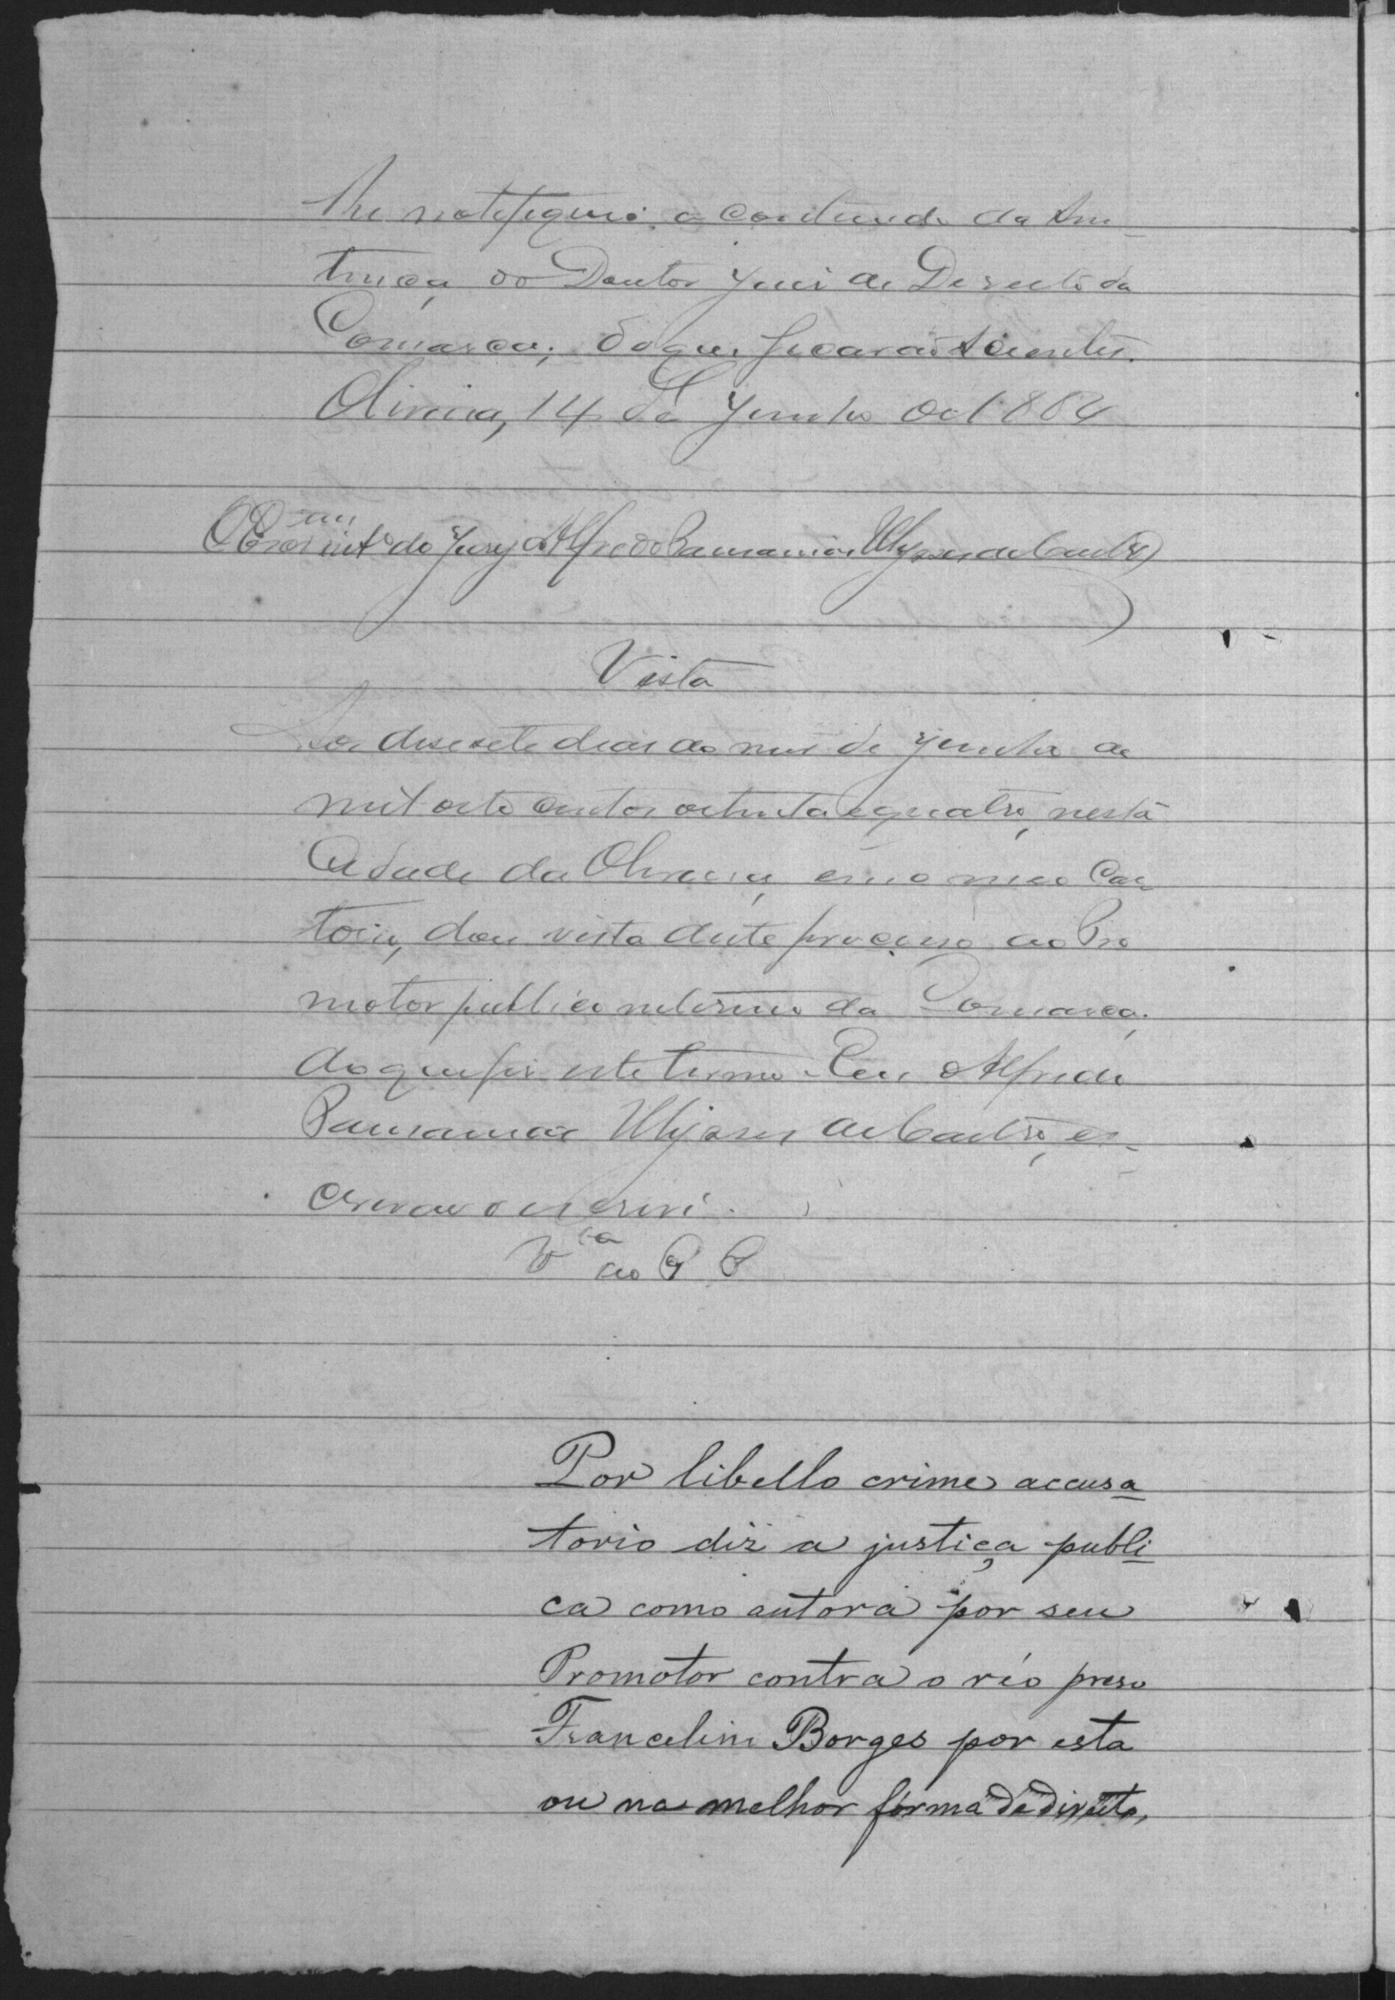 lhe notifiquei o contheudo da sen-
tença do Doutor Juiz de Direito da
Comarca; do que ficarão scientes.
Oliveira, 14 de Junho de 1884
O Escr.am int.o do Jury Alfredo Paranamãe Ulysses de Castro
Vista
Aos desesete dias do mes de Junho de
mil oito centos oitenta e quatro, nesta
Cidade da Oliveira, em o meo Car
torio, dou vista deste processo ao Pro
motor publico interino da Comarca;
do que fiz este termo. Eu Alfredo
Ulysses de Castro, es-
crivão o escrevi.
V.ta ao P P
Por libello crime accusa
torio diz a justiça publi
ca como autora por seu
Promotor contra o réo preso
Francelino Borges por esta
ou na melhor fórma de direito,